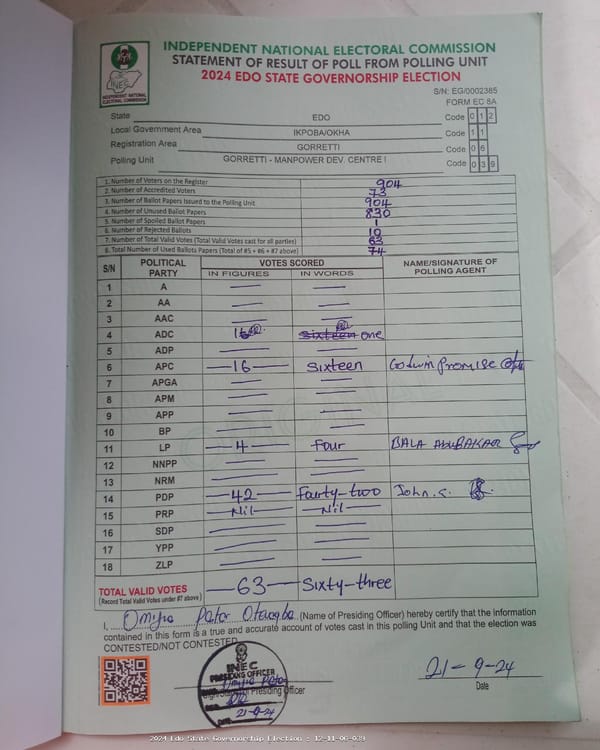 INDEPENDENT NATIONAL ELECTORAL COMMISSION
STATEMENT OF RESULT OF POLL FROM POLLING UNIT
2024 EDO STATE GOVERNORSHIP ELECTION
INEC
INDEPENDENT NATIONAL
ELECTORAL COMMISSION
S/N: EG/0002385
FORM EC 8A
State EDO Code 0 1 2
Local Government Area IKPOBA/OKHA Code 1 1
Registration Area GORRETTI Code 0 6
Polling Unit GORRETTI - MANPOWER DEV. CENTRE I Code 0 3 9
1. Number of Voters on the Register 904
2. Number of Accredited Voters 73
3. Number of Ballot Papers Issued to the Polling Unit 904
4. Number of Unused Ballot Papers 830
5. Number of Spoiled Ballot Papers 1
6. Number of Rejected Ballots 10
7. Number of Total Valid Votes (Total Valid Votes cast for all parties) 63
8. Total Number of Used Ballots Papers (Total of #5 + #6 + #7 above) 74
S/N POLITICAL PARTY VOTES SCORED NAME/SIGNATURE OF POLLING AGENT
IN FIGURES IN WORDS
1 A
2 AA
3 AAC
4 ADC 1 sixteen one
5 ADP
6 APC 16 Sixteen Godwin Promise
7 APGA
8 APM
9 APP
10 BP
11 LP 4 Four BALA AbuBAKAR
12 NNPP
13 NRM
14 PDP 42 Fourty-two John.s.
15 PRP Nil Nil
16 SDP
17 YPP
18 ZLP
TOTAL VALID VOTES 63 Sixty-three
(Record Total Valid Votes under #7 above)
I, (Name of Presiding Officer) hereby certify that the information
contained in this form is a true and accurate account of votes cast in this polling Unit and that the election was
CONTESTED/NOT CONTESTED.
INEC
PRESIDING OFFICER
21-9-24
Presiding Officer
21-9-24
Date
2024 Edo State Governorship Election : 12-11-06-039